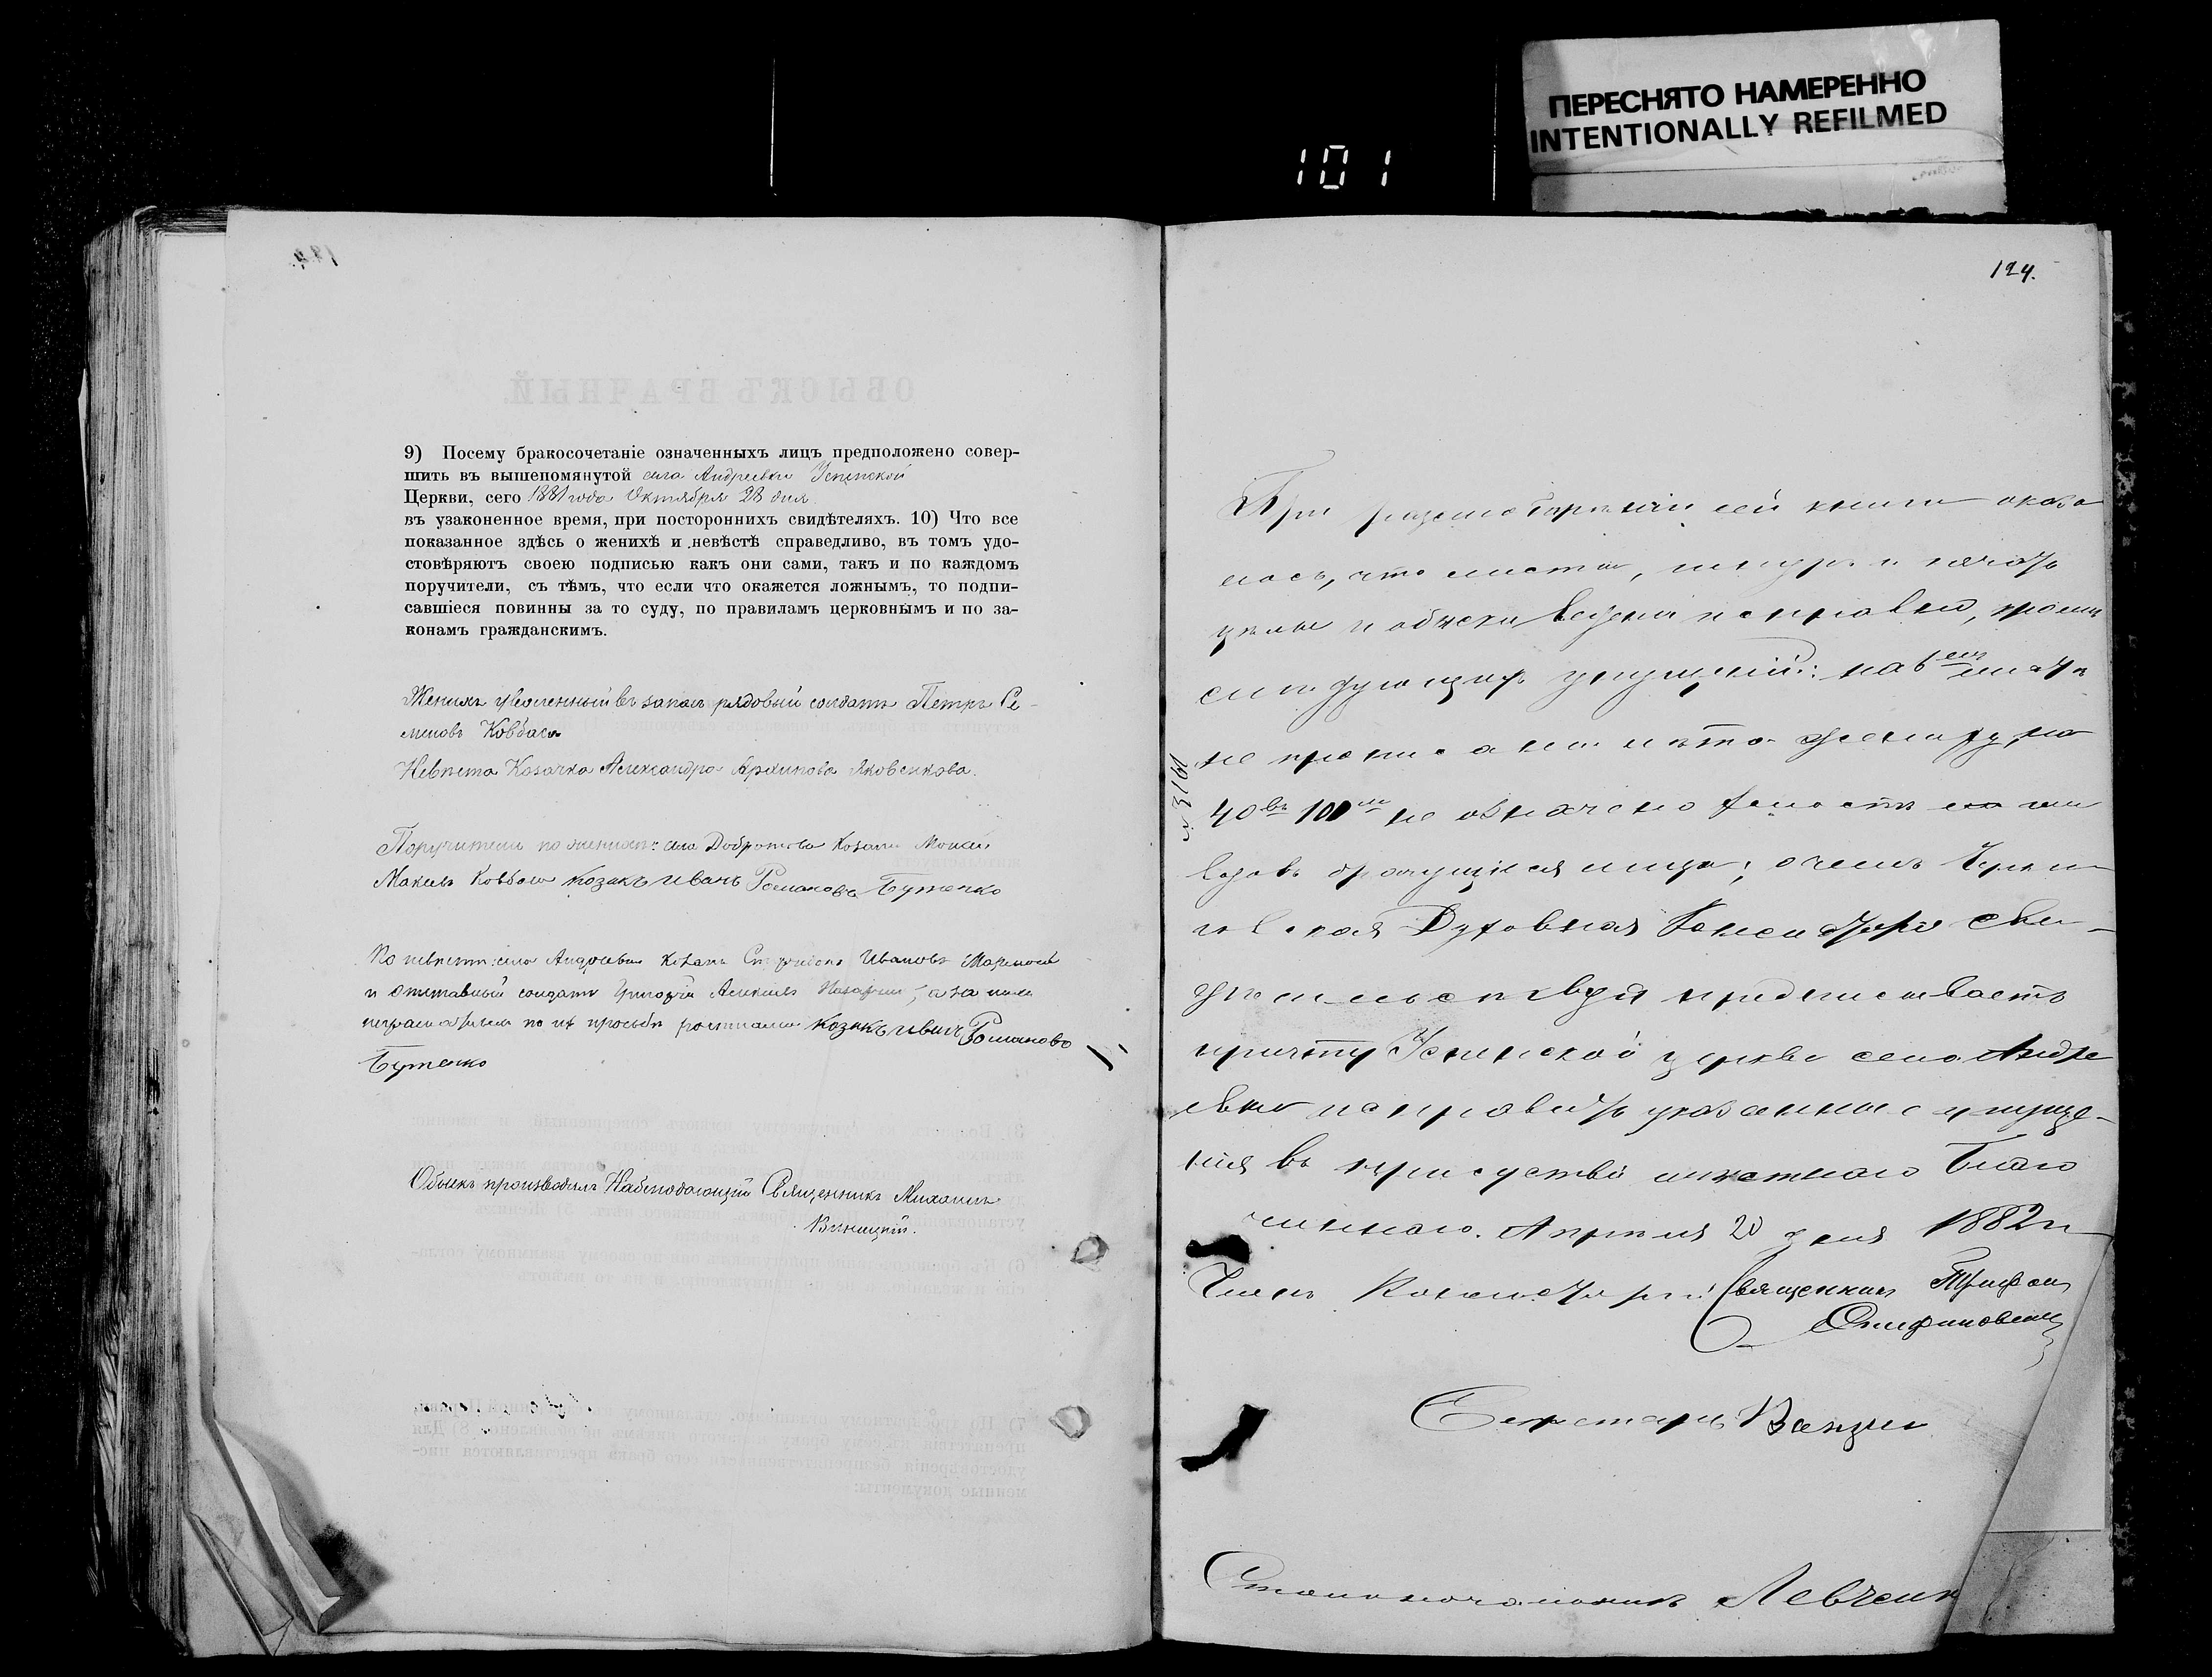 ПЕРЕСНЯТО НАМЕРЕННО
INTENTIONALLY REFILMED
101
9) Посему бракосочетаніе означенныхъ лицъ предположено совер-
шить въ вышепомянутой села Андреевки Успенской
Церкви, сего 1881 года Октября 28 дня
въ узаконенное время, при постороннихъ свидѣтеляхъ. 10) Что все
показанное здѣсь о женихѣ и невѣстѣ справедливо, въ томъ удо-
стовѣряютъ своею подписью какъ они сами, такъ и по каждомъ
поручители, съ тѣмъ, что если что окажется ложнымъ, то подпи-
савшіеся повинны за то суду, по правиламъ церковнымъ и по за-
конамъ гражданскимъ.
Женихъ уволенный въ запасъ рядовый солдатъ Петръ Се-
меновъ Ковбаса
Невѣста Козачка Александра Архипова Яковенкова.
Поручители по женихѣ: села Козакъ
Ковбаса Козакъ Иванъ Романовъ Бутенко
По невѣстѣ: села Андреевки Козакъ Ивановъ
и отставный солдатъ Григорій Алексѣевъ а за ихъ
по их просьбѣ Козакъ Иванъ Романовъ
Бутенко
Обыскъ производилъ Наблюдающій Священникъ Михаилъ
124.
При сей книги оказа
лось, что листы, шнуръ и печать
цѣлы и обыски ведены исправно, кромѣ
слѣдующихъ упущеній: на 6
не прописаны лѣта жениху, на
40 въ 100 не означено
вдовъ лица; о чемъ Черни
говская Духовная Консисторія сви-
дѣтельствуя предписываетъ
причту Успенской церкви села Андре
евки исправить указанныя упуще-
нія въ присутствіи мѣстнаго Благо
чиннаго. Апрѣля 20 дня 1882 г
Членъ Консисторіи Священникъ Трифонъ
Секретарь
Столоначальникъ Левченк